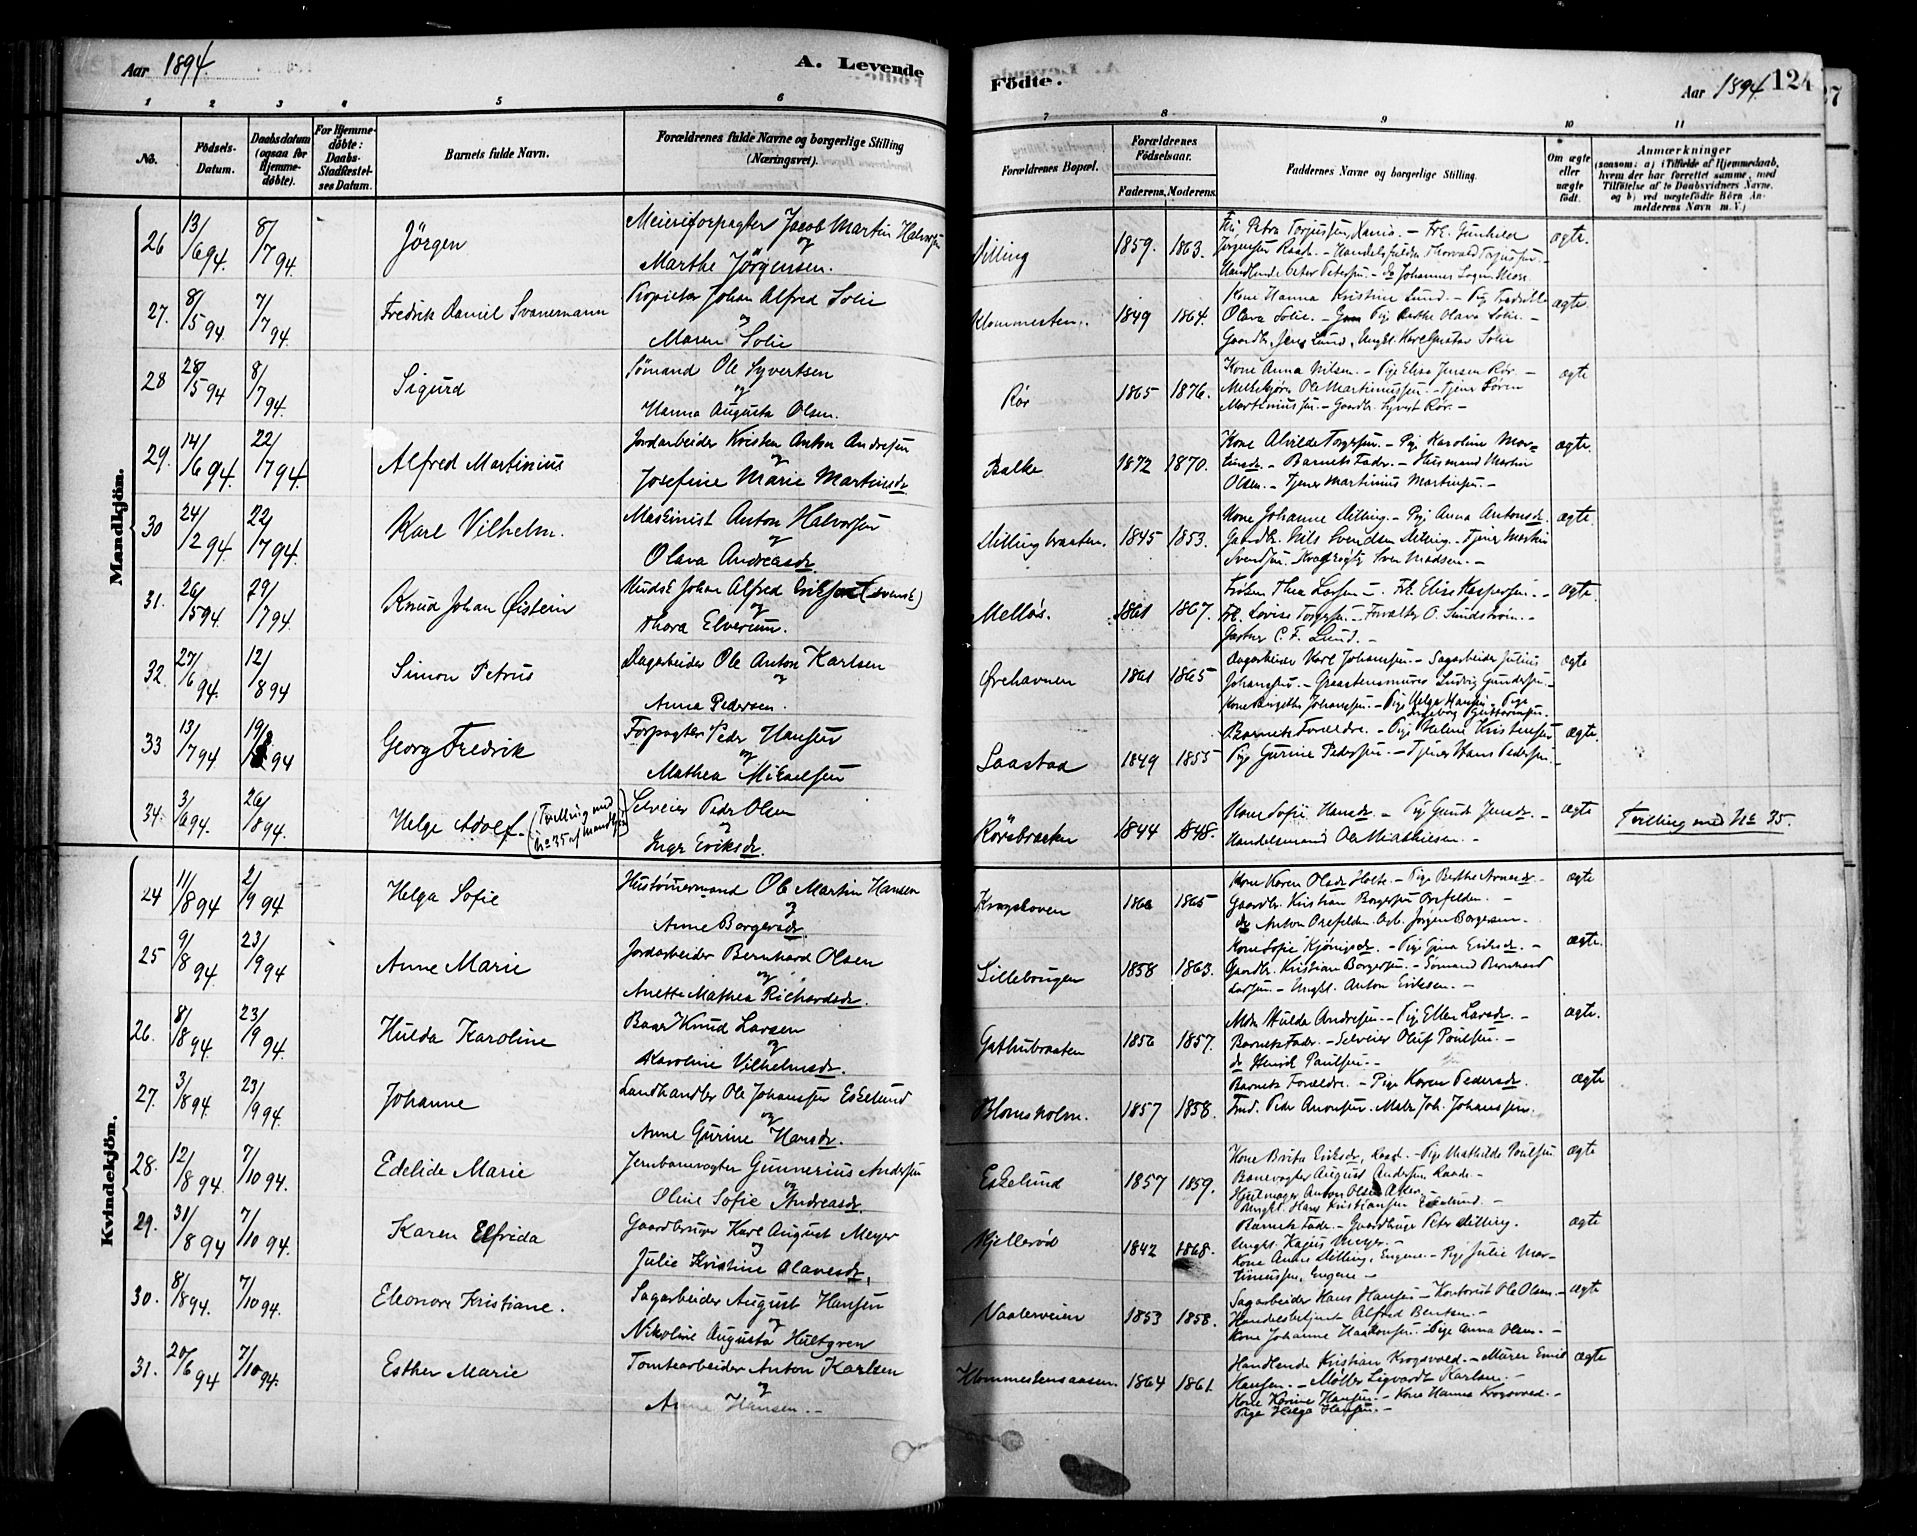 Aar 1894.
A. Levende
Födte.
Aar 1894.
124
27
1 2 3 4 5 6
7 8 9 10 11
No.
Födsels-Datum.
Daabsdatum (ogsaa for Hjemme-döbte).
For Hjemme-döbte: Daabs-Stadfæstel-ses Datum.
Barnets fulde Navn.
Forældrenes fulde Navne og borgerlige Stilling (Næringsvei).
Forældrenes Bopæl.
Forældrenes Födselsaar.
Faderens. Moderens.
Faddernes Navne og borgerlige Stilling.
Om ægte eller uægte födt.
Anmærkninger
(saasom: a) i Tilfælde af Hjemmedaab,
hvem der har forrettet samme, med
Tilföielse af to Daabsvidners Navne,
og b) ved uægtefödte Börn An-
melderens Navn m. V.)
Mandkjön.
26 13/6 94. 8/7 94. Jörgen
Meieriforpagter Jacob Martin Halvorsen
og
Marthe Jörgensen.
Dilling 1859. 1863.
Frk. Petra Torgussen, - Frk. Gunhilda
Jörgensen Raade. - Thorvald
Handlende Peter Petersen. - do Johannes
ægte.
27. 8/5 94. 7/7 94. Fredrik Daniel Svanemann
Propietær Johan Alfred Solie
og
Maren Solie
Klommesten. 1849 1864.
Kone Hanna Kristine Lund. - Pige Fredrikke
Olava Solie. - Pige Berthe Olava Solie. -
Gaardbr. Jens Lund, Ungk. Karl Gustav Solie
ægte.
28 28/5 94 8/7 94. Sigurd
Sömand Ole Syvertsen
og
Hanna Augusta Olsen.
Rör 1865 1876.
Kone Anna Nilsen. - Pige Elisa Jensen Rör. -
Melkekjörer Ole Martinussen. - Tjener Sören
Martiniussen. - Gaardbr. Syvert Rör. -
ægte
29. 14/6 94. 22/7 94. Alfred Martinius
Jordarbeider Kristen Anton Andresen
og
Josefine Marie Martinsdr.
Balke 1872 1870.
Kone Alvilde Torgersen. - Pige Karoline Mar-
tinsdr. - Barnets Fader. - Husmand Martin
Olsen. - Tjener Martinius Martinsen. -
ægte.
30 24/2 94. 22/7 94. Karl Vilhelm.
Maskinist Anton Halvorsen
og
Olava Andreasdr.
Dillingbraaten. 1845 1853.
Kone Johanne Dilling. - Pige Anna Antonsdr.
Gaardbr. Nils Svendsen Dilling. - Tjener Martin
Svendsen. - Sven Madsen. -
ægte.
31. 26/5 94. 29/7 94. Knud Johan Øistein
Kudsk Johan Alfred Eriksen (svensk)
og
Thora Elverum.
Mellös. 1861 1867.
Fröken Thea Larsen - Frk. Elise Kaspersen. -
Frk. Lovise Torgersen - Forvalter O. Sundström. -
Gartner C. F. Lund. -
ægte.
32. 27/6 94. 12/8 94 Simon Petrus
Dagarbeider Ole Anton Karlsen
og
Anna Pedersen.
Ørehavnen 1861 1865
Dagarbeider Karl Johansen. - Sagarbeider Julius
Johansen. - Graastensmurer Ludvig Gundersen. -
Kone Birgithe Johansen. - Pige Helga Hansen. Pige
Ingeborg Guttormsen.
ægte
33 13/7 94 19/8 94 Georg Fredrik
Forpagter Peder Hansen
og
Mathea Mikaelsen
Saastad 1849 1855
Barnets Forældre. - Pige Helene Kristensen
Pige Gurine Pedersen. - Tjener Hans Pedersen. -
ægte.
34. 3/6 94. 26/8 94. Helge Adolf. (Tvilling med No 35 af Mandkjön)
Selveier Peder Olsen
og
Inger Eriksdr.
Rörsbraaten 1844 1848.
Kone Sofie Hansdr. - Pige Gunda Jensdr. -
Handelsmand Ole Mathiesen. -
ægte
Tvilling med No 35.
Kvindekjön.
24 11/8 94 2/9 94 Helga Sofie
Hustömmermand Ole Martin Hansen
og
Anne Borgersdr.
Kragskoven 1866 1865
Kone Karen Olsdr. Holte. - Pige Berthe Arnesdr. -
Gaardbr. Kristian Borgersen Orefelden.
do Anton Orefelden. Arb. Jörgen Borgersen.
ægte
25 9/8 94 23/9 94 Anne Marie
Jordarbeider Bernhard Olsen
og
Anette Mathea Richardsdr.
Lillebrugen 1858 1863.
Kone Sofie - Pige Gina Eriksdr. -
Gaardbr. Kristian Borgersen. - Sömand Bernhard
Larsen. - Ungk. Anton Eriksen. -
ægte.
26. 8/8 94. 23/9 94. Hulda Karoline
Baar Knud Larsen
og
Karoline Vilhelmsdr.
Gathubraaten 1856 1857.
Mdm Hulda Andresen. - Pige Ellen Larsdr. -
Barnets Fader. - Selveier Oluf Paulsen. -
do Henrik Paulsen. -
ægte.
27. 3/8 94. 23/9 94. Johanne
Landhandler Ole Johansen Eskelund
og
Anne Gurine Hansdr.
Blomsholm. 1857 1858.
Barnets Forældre. - Pige Karen Pedersdr.
Peder Arnesen. Maler Joh. Johanssen.
ægte
28. 12/8 94. 7/10 94. Edelide Marie
Jernbanevogter Gunnerius Andersen
og
Oline Sofie Andreasdr.
Eskelund 1857 1859.
Kone Brita Eriksdr, Raad. - Pige Mathilde Paulsen
Banevogter August Andersen Raade.
Hjulmager Anton Olsen Aker. -
Ungk. Hans Kristiansen Eskelund. -
ægte
29. 31/8 94 7/10 94. Karen Elfrida
Gaardbruger Karl August Meyer
og
Julie Kristine Olavesdr.
Kjellerød 1842 1868.
Barnets Fader. - Gaardbruger Peter Dilling.
Ungk. Kagius Meyer. -
Kone Anne Dilling, Engene. - Pige Julie Mar-
tinussen, Engene -
ægte
30. 8/8 94. 7/10 94. Eleonore Kristiane.
Sagarbeider August Hansen
og
Nikoline Augusta Hultgren
Vaalerveien 1853 1858.
Sagarbeider Hans Hansen - Kontorist Ole Olsen. -
Handelsbetjent Alfred Bentsen. -
Kone Johanne Haakonsen. Pige Anna Olsen. -
ægte
31. 20/6 94 7/10 94. Esther Marie
Tomtearbeider Anton Karlsen
og
Anne Hansen. -
Klommestensaasen. 1864 1861.
Handlende Kristian Krogsvold. - Murer Emil
Hansen. - Møller Sigvardt Karlsen. -
Kone Karine Hansen. - Kone Hanna Krogsvold. -
Pige Helga Hansen. -
ægte